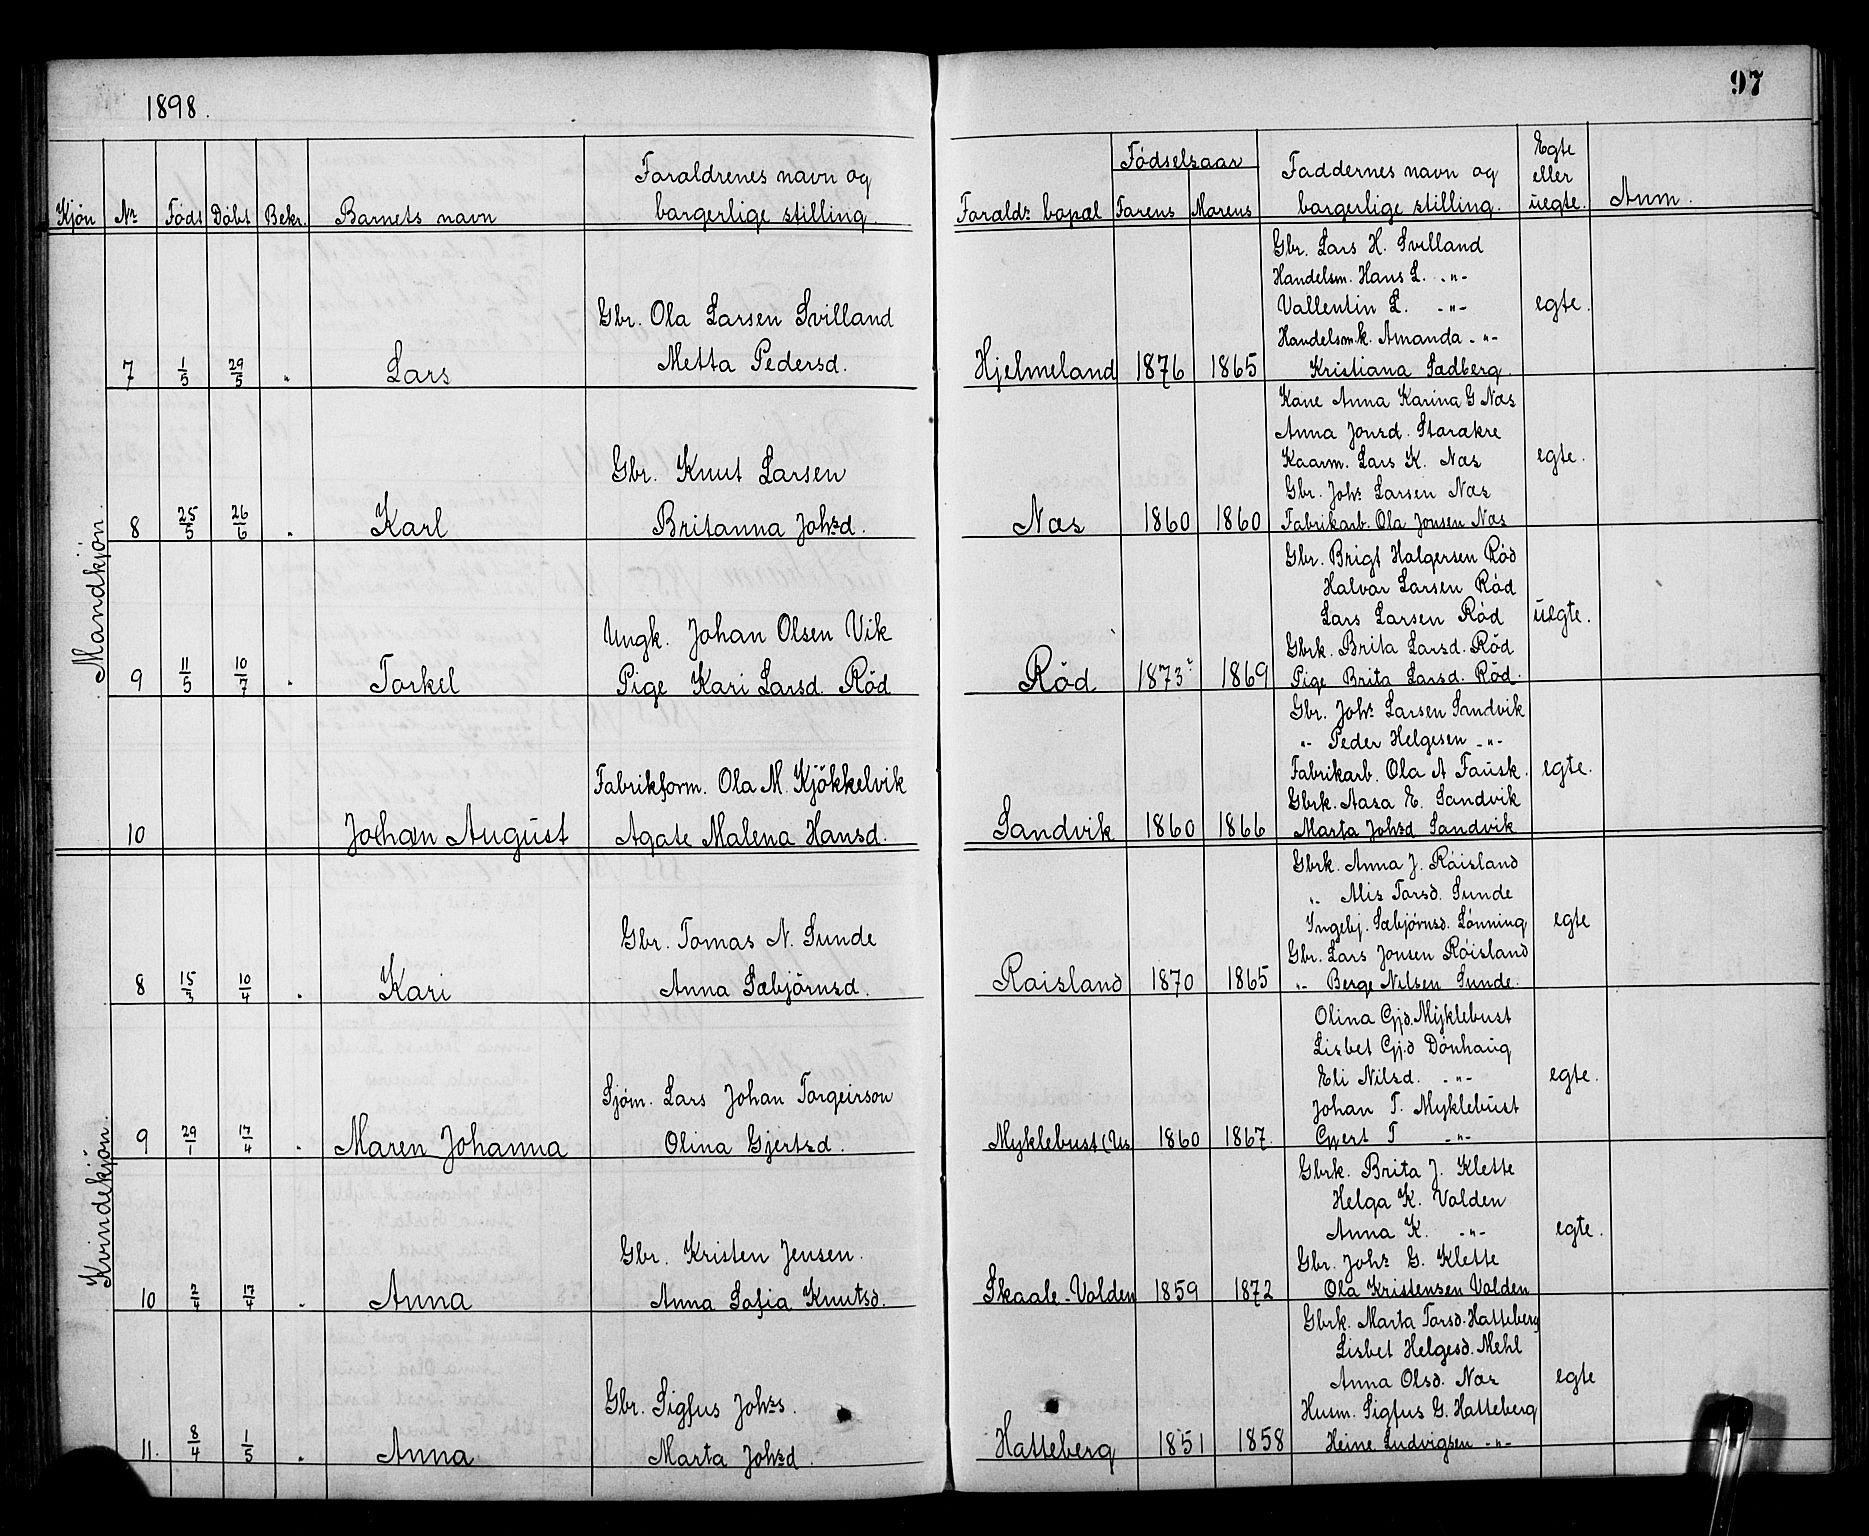 1898.
97
Kjön
Nr.
Födt
Döbt
Bekr.
Barnets navn
Foraldrenes navn og
borgerlige stilling.
Forald: bopæl
Födselsaar
Farens
Morens
Faddernes navn og
borgerlige stilling.
Egte
eller
uegte.
Anm.
Mandkjön.
7 1/5 29/5 " Lars
Gbr. Ola Larsen Svilland
Metta Pedersd.
Hjelmeland 1876 1865
Gbr. Lars H. Svilland
Handelsm. Hans L. -"-
Vallentin L. -"-
Handelsmk. Amanda -"-
Kristiana Sadberg
egte.
8 25/5 26/6 " Karl
Gbr. Knut Larsen
Britanna Johsd.
Næs 1860 1860
Kone Anna Karina G Næs
Anna Jonsd. Storakre
Kaarm. Lars K. Næs
Gbr. Johs Larsen Næs
Fabrikarb. Ola Jonsen Næs
egte.
9 11/5 10/7 " Torkel
Ungk. Johan Olsen Vik
Pige Kari Larsd. Röd
Röd 1873 1869
Gbr. Brigt Halgersen Röd
Halvor Larsen Röd
Lars Larsen Röd
Gbrk. Brita Larsd. Röd
Pige Brita Larsd. Röd.
uegte.
10 Johan August
Fabrikform. Ola M. Kjökkelvik
Agate Malena Hansd.
Sandvik 1860 1866
Gbr. Johs Larsen Sandvik
" Peder Helgesen -"-
Fabrikarb. Ola A Fausk.
Gbrk. Aasa E. Sandvik
Marta Johsd Sandvik
egte.
Kvindekjön.
8 15/3 10/4 " Kari
Gbr. Tomas N. Sunde
Anna Sæbjörnsd.
Röisland 1870 1865
Gbrk. Anna J. Röisland
" Alis Torsd. Sunde
Ingebj. Sæbjörnsd. Lönning
Gbr. Lars Jonsen Röisland
" Berge Nilsen Sunde.
egte
9 29/1 17/4 " Maren Johanna
Sjöm. Lars Johan Torgeirson
Olina Gjertsd.
Myklebust (Us 1860 1867.
Olina Gjd. Myklebust
Lisbet Gjd Dönhaug
Eli Nilsd. -"-
Johan T. Myklebust
Gjert T -"-
egte.
10 2/4 17/4 " Anna
Gbr. Kristen Jensen.
Anna Sofia Knutsd.
Skaale-Volden 1859 1872
Gbrk. Brita J. Klette
Helga K. Volden
Anna K. -"-
Gbr. Johs G. Klette
Ola Kristensen Volden
egte.
11. 8/4 1/5 " Anna
Gbr. Sigfus Johs.
Marta Johsd
Hatteberg 1851 1858
Gbrk. Marta Torsd. Hatteberg
Lisbet Helgesd. Mehl
Anna Olsd. Næs
Husm. Sigfus G. Hatteberg
Heine Ludvigsen -"-
egte